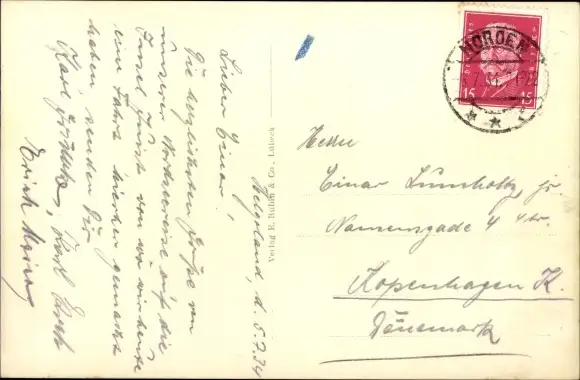 Helgoland, d. 5.7.34
Lieber Einar!
Die herzlichsten Grüße von
unserer Nordseereise auf die
Insel Juist von wo wir heute
eine Fahrt hierher gemacht
haben senden Dir
Karl
Karl
Erich
Verlag E. Rubin & Co - Lübeck
NORDEN
15 15
Herrn
Einar Lumholtz, jr.
Nansensgade 4
Kopenhagen K.
Dänemark